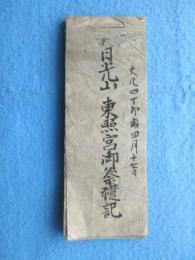 文化四丁卯歳四月十七日
日光山東照宮御祭禮記